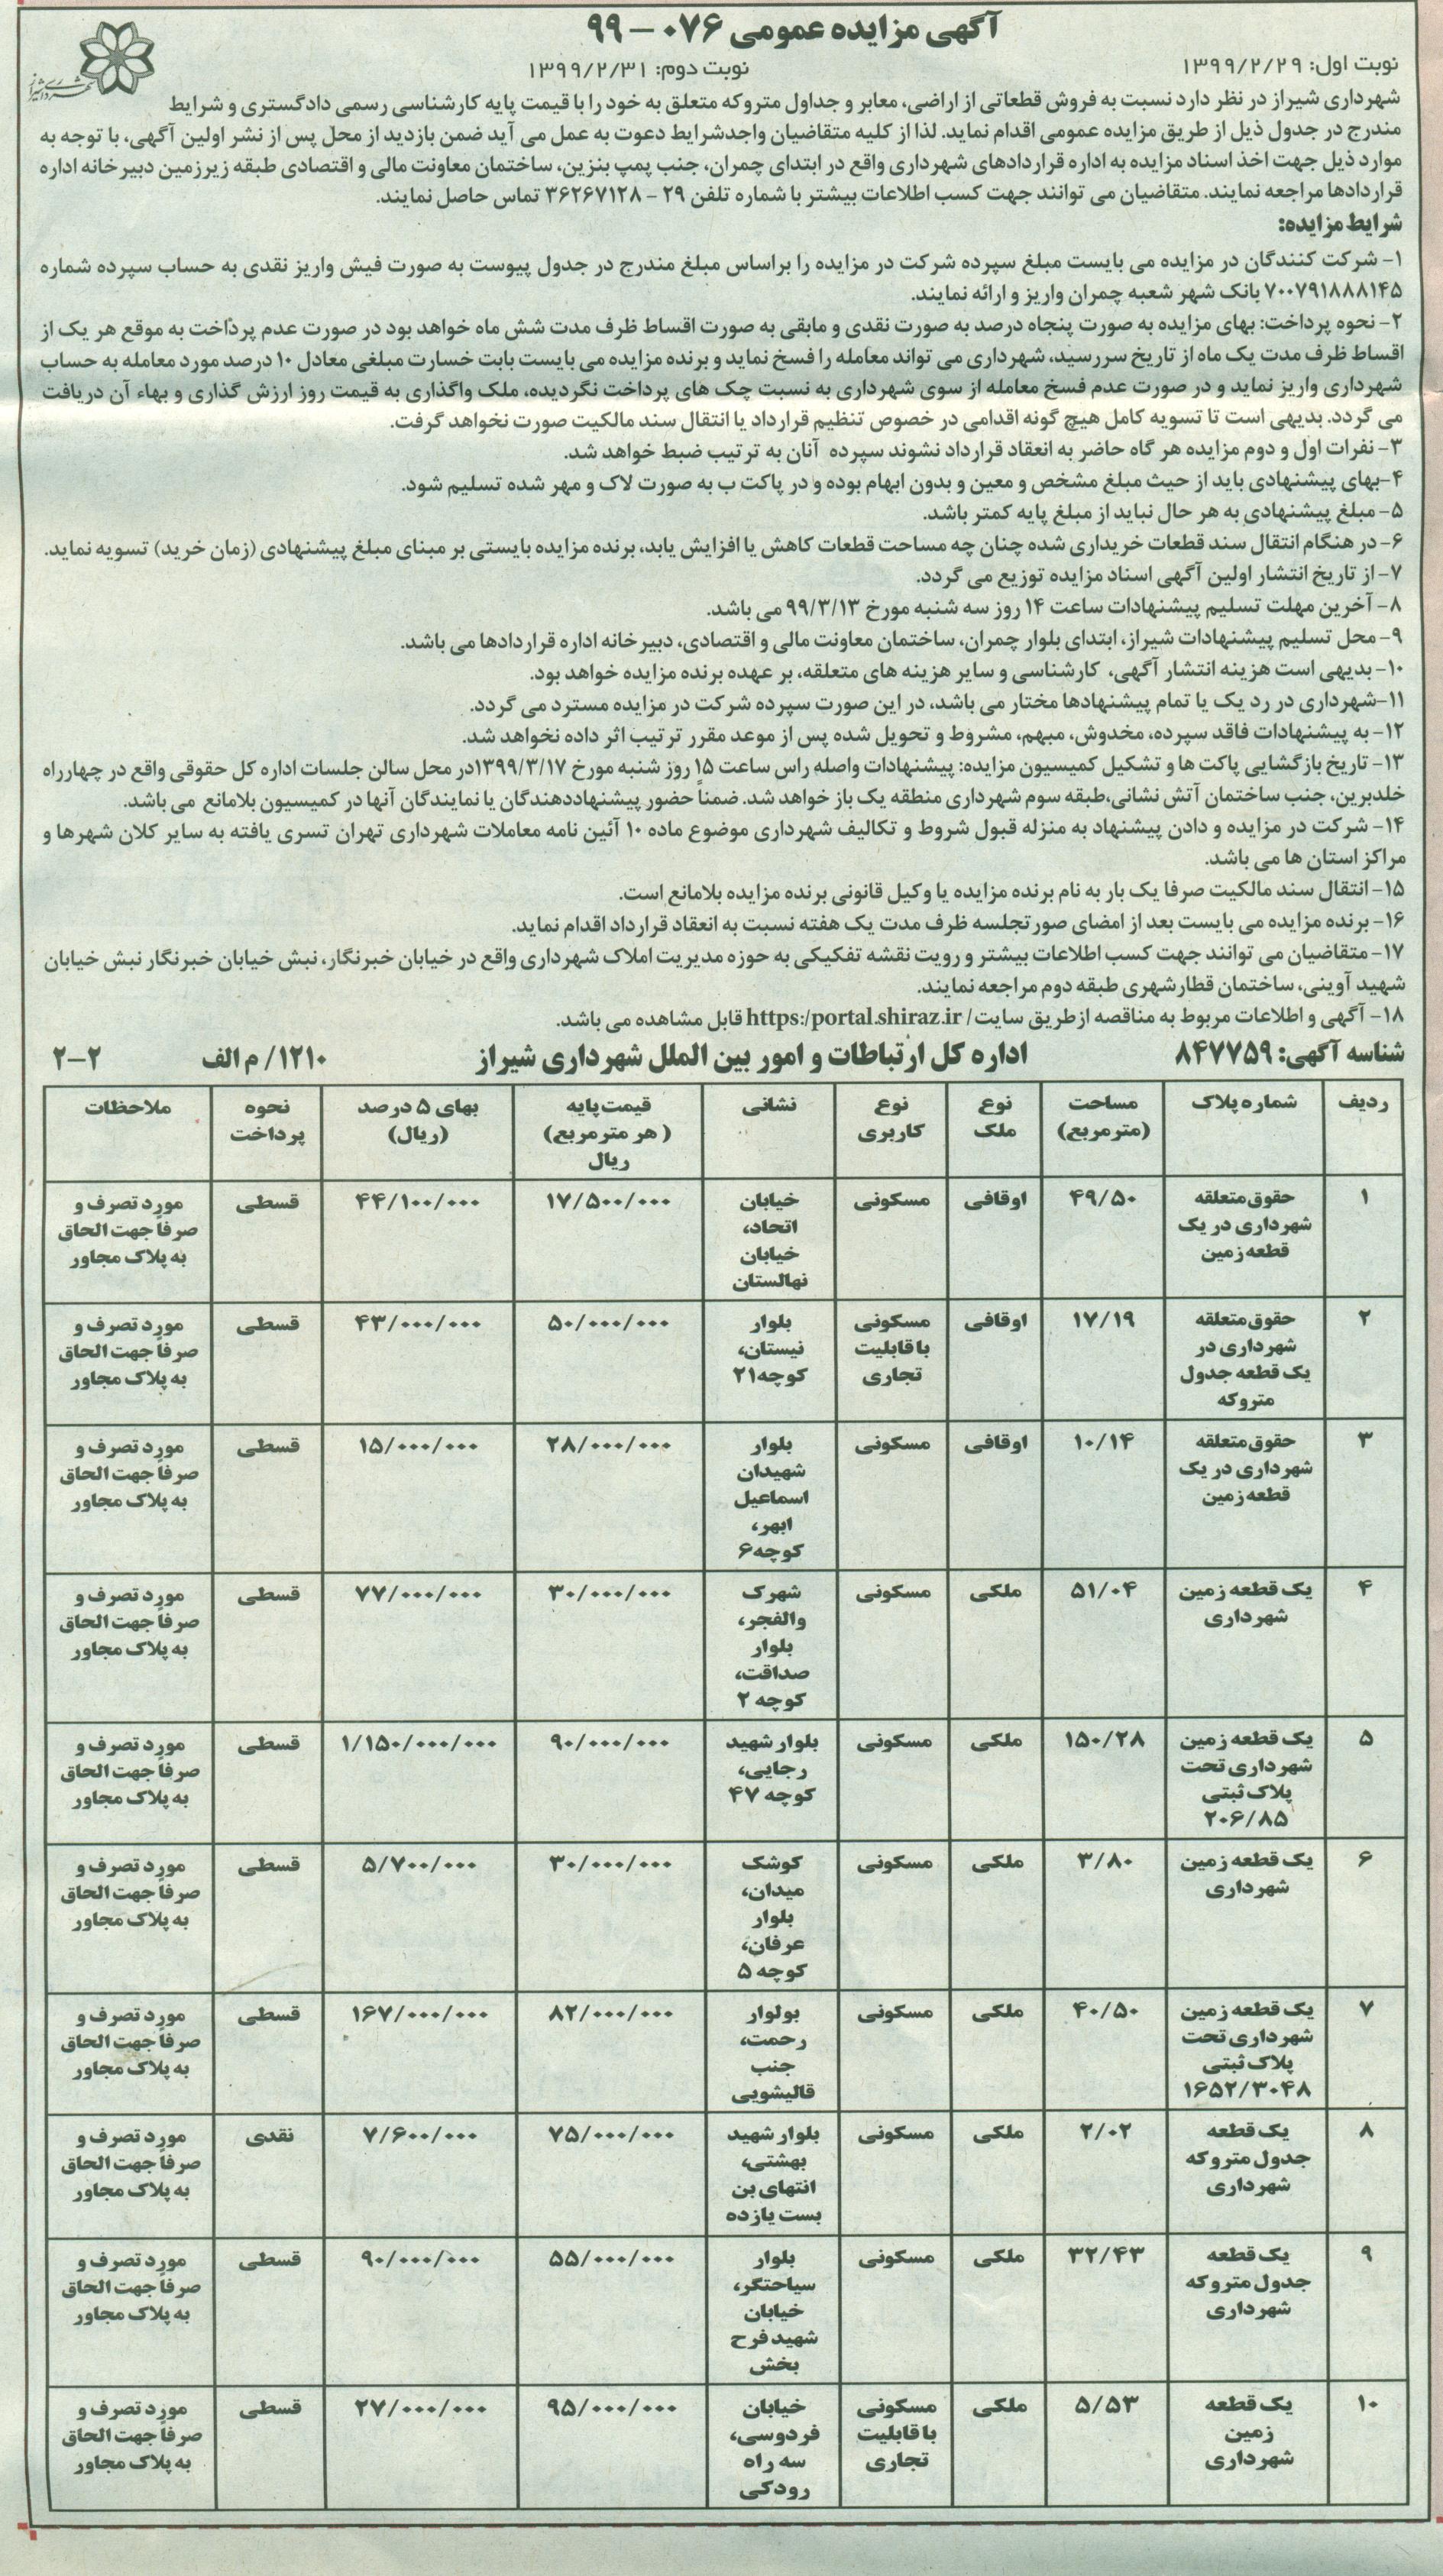 آگهی مزایده عمومی ۰۷۶ – ۹۹
نوبت اول: ۱۳۹۹/۲/۲۹
نوبت دوم: ۱۳۹۹/۲/۳۱
شهرداری شیراز در نظر دارد نسبت به فروش قطعاتی از اراضی، معابر و جداول متروکه متعلق به خود را با قیمت پایه کارشناسی رسمی دادگستری و شرایط
مندرج در جدول ذیل از طریق مزایده عمومی اقدام نماید. لذا از کلیه متقاضیان واجدشرایط دعوت به عمل می آید ضمن بازدید از محل پس از نشر اولین آگهی، با توجه به
موارد ذیل جهت اخذ اسناد مزایده به اداره قراردادهای شهرداری واقع در ابتدای چمران، جنب پمپ بنزین، ساختمان معاونت مالی و اقتصادی طبقه زیرزمین دبیرخانه اداره
قراردادها مراجعه نمایند. متقاضیان می توانند جهت کسب اطلاعات بیشتر با شماره تلفن ۲۹ – ۳۶۲۶۷۱۲۸ تماس حاصل نمایند.
شرایط مزایده:
۱– شرکت کنندگان در مزایده می بایست مبلغ سپرده شرکت در مزایده را براساس مبلغ مندرج در جدول پیوست به صورت فیش واریز نقدی به حساب سپرده شماره
۷۰۰۷۹۱۸۸۸۱۴۵ بانک شهر شعبه چمران واریز و ارائه نمایند.
۲– نحوه پرداخت: بهای مزایده به صورت پنجاه درصد به صورت نقدی و مابقی به صورت اقساط ظرف مدت شش ماه خواهد بود در صورت عدم پرداخت به موقع هر یک از
اقساط ظرف مدت یک ماه از تاریخ سررسید، شهرداری می تواند معامله را فسخ نماید و برنده مزایده می بایست بابت خسارت مبلغی معادل ۱۰ درصد مورد معامله به حساب
شهرداری واریز نماید و در صورت عدم فسخ معامله از سوی شهرداری به نسبت چک های پرداخت نگردیده، ملک واگذاری به قیمت روز ارزش گذاری و بهاء آن دریافت
می گردد. بدیهی است تا تسویه کامل هیچ گونه اقدامی در خصوص تنظیم قرارداد یا انتقال سند مالکیت صورت نخواهد گرفت.
۳– نفرات اول و دوم مزایده هر گاه حاضر به انعقاد قرارداد نشوند سپرده آنان به ترتیب ضبط خواهد شد.
۴–بهای پیشنهادی باید از حیث مبلغ مشخص و معین و بدون ابهام بوده و در پاکت ب به صورت لاک و مهر شده تسلیم شود.
۵– مبلغ پیشنهادی به هر حال نباید از مبلغ پایه کمتر باشد.
۶– در هنگام انتقال سند قطعات خریداری شده چنان چه مساحت قطعات کاهش یا افزایش یابد، برنده مزایده بایستی بر مبنای مبلغ پیشنهادی (زمان خرید) تسویه نماید.
۷– از تاریخ انتشار اولین آگهی اسناد مزایده توزیع می گردد.
۸– آخرین مهلت تسلیم پیشنهادات ساعت ۱۴ روز سه شنبه مورخ ۹۹/۳/۱۳ می باشد.
۹– محل تسلیم پیشنهادات شیراز، ابتدای بلوار چمران، ساختمان معاونت مالی و اقتصادی، دبیرخانه اداره قراردادها می باشد.
۱۰– بدیهی است هزینه انتشار آگهی، کارشناسی و سایر هزینه های متعلقه، بر عهده برنده مزایده خواهد بود.
۱۱–شهرداری در رد یک یا تمام پیشنهادها مختار می باشد، در این صورت سپرده شرکت در مزایده مسترد می گردد.
۱۲– به پیشنهادات فاقد سپرده، مخدوش، مبهم، مشروط و تحویل شده پس از موعد مقرر ترتیب اثر داده نخواهد شد.
۱۳– تاریخ بازگشایی پاکت ها و تشکیل کمیسیون مزایده: پیشنهادات واصله راس ساعت ۱۵ روز شنبه مورخ ۱۳۹۹/۳/۱۷در محل سالن جلسات اداره کل حقوقی واقع در چهارراه
خلدبرین، جنب ساختمان آتش نشانی،طبقه سوم شهرداری منطقه یک باز خواهد شد. ضمناً حضور پیشنهاددهندگان یا نمایندگان آنها در کمیسیون بلامانع می باشد.
۱۴– شرکت در مزایده و دادن پیشنهاد به منزله قبول شروط و تکالیف شهرداری موضوع ماده ۱۰ آئین نامه معاملات شهرداری تهران تسری یافته به سایر کلان شهرها و
مراکز استان ها می باشد.
۱۵– انتقال سند مالکیت صرفا یک بار به نام برنده مزایده یا وکیل قانونی برنده مزایده بلامانع است.
۱۶– برنده مزایده می بایست بعد از امضای صورتجلسه ظرف مدت یک هفته نسبت به انعقاد قرارداد اقدام نماید.
۱۷– متقاضیان می توانند جهت کسب اطلاعات بیشتر و رویت نقشه تفکیکی به حوزه مدیریت املاک شهرداری واقع در خیابان خبرنگار، نبش خیابان خبرنگار نبش خیابان
شهید آوینی، ساختمان قطارشهری طبقه دوم مراجعه نمایند.
۱۸– آگهی و اطلاعات مربوط به مناقصه ازطریق سایت/ https:/portal.shiraz.ir قابل مشاهده می باشد.
شناسه آگهی: ۸۴۷۷۵۹ اداره کل ارتباطات و امور بین الملل شهرداری شیراز ۱۲۱۰/ م الف ۲–۲
ردیف | شماره پلاک | مساحت (مترمربع) | نوع ملک | نوع کاربری | نشانی | قیمت پایه (هر مترمربع) ریال | بهای ۵ درصد (ریال) | نحوه پرداخت | ملاحظات
۱ | حقوق متعلقه شهرداری در یک قطعه زمین | ۴۹/۵۰ | اوقافی | مسکونی | خیابان اتحاد، خیابان نهالستان | ۱۷/۵۰۰/۰۰۰ | ۴۴/۱۰۰/۰۰۰ | قسطی | مورد تصرف و صرفاً جهت الحاق به پلاک مجاور
۲ | حقوق متعلقه شهرداری در یک قطعه جدول متروکه | ۱۷/۱۹ | اوقافی | مسکونی با قابلیت تجاری | بلوار نیستان، کوچه۲۱ | ۵۰/۰۰۰/۰۰۰ | ۴۳/۰۰۰/۰۰۰ | قسطی | مورد تصرف و صرفاً جهت الحاق به پلاک مجاور
۳ | حقوق متعلقه شهرداری در یک قطعه زمین | ۱۰/۱۴ | اوقافی | مسکونی | بلوار شهیدان اسماعیل ابهر، کوچه۶ | ۲۸/۰۰۰/۰۰۰ | ۱۵/۰۰۰/۰۰۰ | قسطی | مورد تصرف و صرفاً جهت الحاق به پلاک مجاور
۴ | یک قطعه زمین شهرداری | ۵۱/۰۴ | ملکی | مسکونی | شهرک والفجر، بلوار صداقت، کوچه ۲ | ۳۰/۰۰۰/۰۰۰ | ۷۷/۰۰۰/۰۰۰ | قسطی | مورد تصرف و صرفاً جهت الحاق به پلاک مجاور
۵ | یک قطعه زمین شهرداری تحت پلاک ثبتی ۲۰۶/۸۵ | ۱۵۰/۲۸ | ملکی | مسکونی | بلوار شهید رجایی، کوچه ۴۷ | ۹۰/۰۰۰/۰۰۰ | ۱/۱۵۰/۰۰۰/۰۰۰ | قسطی | مورد تصرف و صرفاً جهت الحاق به پلاک مجاور
۶ | یک قطعه زمین شهرداری | ۳/۸۰ | ملکی | مسکونی | کوشک میدان، بلوار عرفان، کوچه ۵ | ۳۰/۰۰۰/۰۰۰ | ۵/۷۰۰/۰۰۰ | قسطی | مورد تصرف و صرفاً جهت الحاق به پلاک مجاور
۷ | یک قطعه زمین شهرداری تحت پلاک ثبتی ۱۶۵۲/۳۰۴۸ | ۴۰/۵۰ | ملکی | مسکونی | بولوار رحمت، جنب قالیشویی | ۸۲/۰۰۰/۰۰۰ | ۱۶۷/۰۰۰/۰۰۰ | قسطی | مورد تصرف و صرفاً جهت الحاق به پلاک مجاور
۸ | یک قطعه جدول متروکه شهرداری | ۲/۰۲ | ملکی | مسکونی | بلوار شهید بهشتی، انتهای بن بست یازده | ۷۵/۰۰۰/۰۰۰ | ۷/۶۰۰/۰۰۰ | نقدی | مورد تصرف و صرفاً جهت الحاق به پلاک مجاور
۹ | یک قطعه جدول متروکه شهرداری | ۳۲/۴۳ | ملکی | مسکونی | بلوار سیاحتگر، خیابان شهید فرح بخش | ۵۵/۰۰۰/۰۰۰ | ۹۰/۰۰۰/۰۰۰ | قسطی | مورد تصرف و صرفاً جهت الحاق به پلاک مجاور
۱۰ | یک قطعه زمین شهرداری | ۵/۵۳ | ملکی | مسکونی با قابلیت تجاری | خیابان فردوسی، سه راه رودکی | ۹۵/۰۰۰/۰۰۰ | ۲۷/۰۰۰/۰۰۰ | قسطی | مورد تصرف و صرفاً جهت الحاق به پلاک مجاور